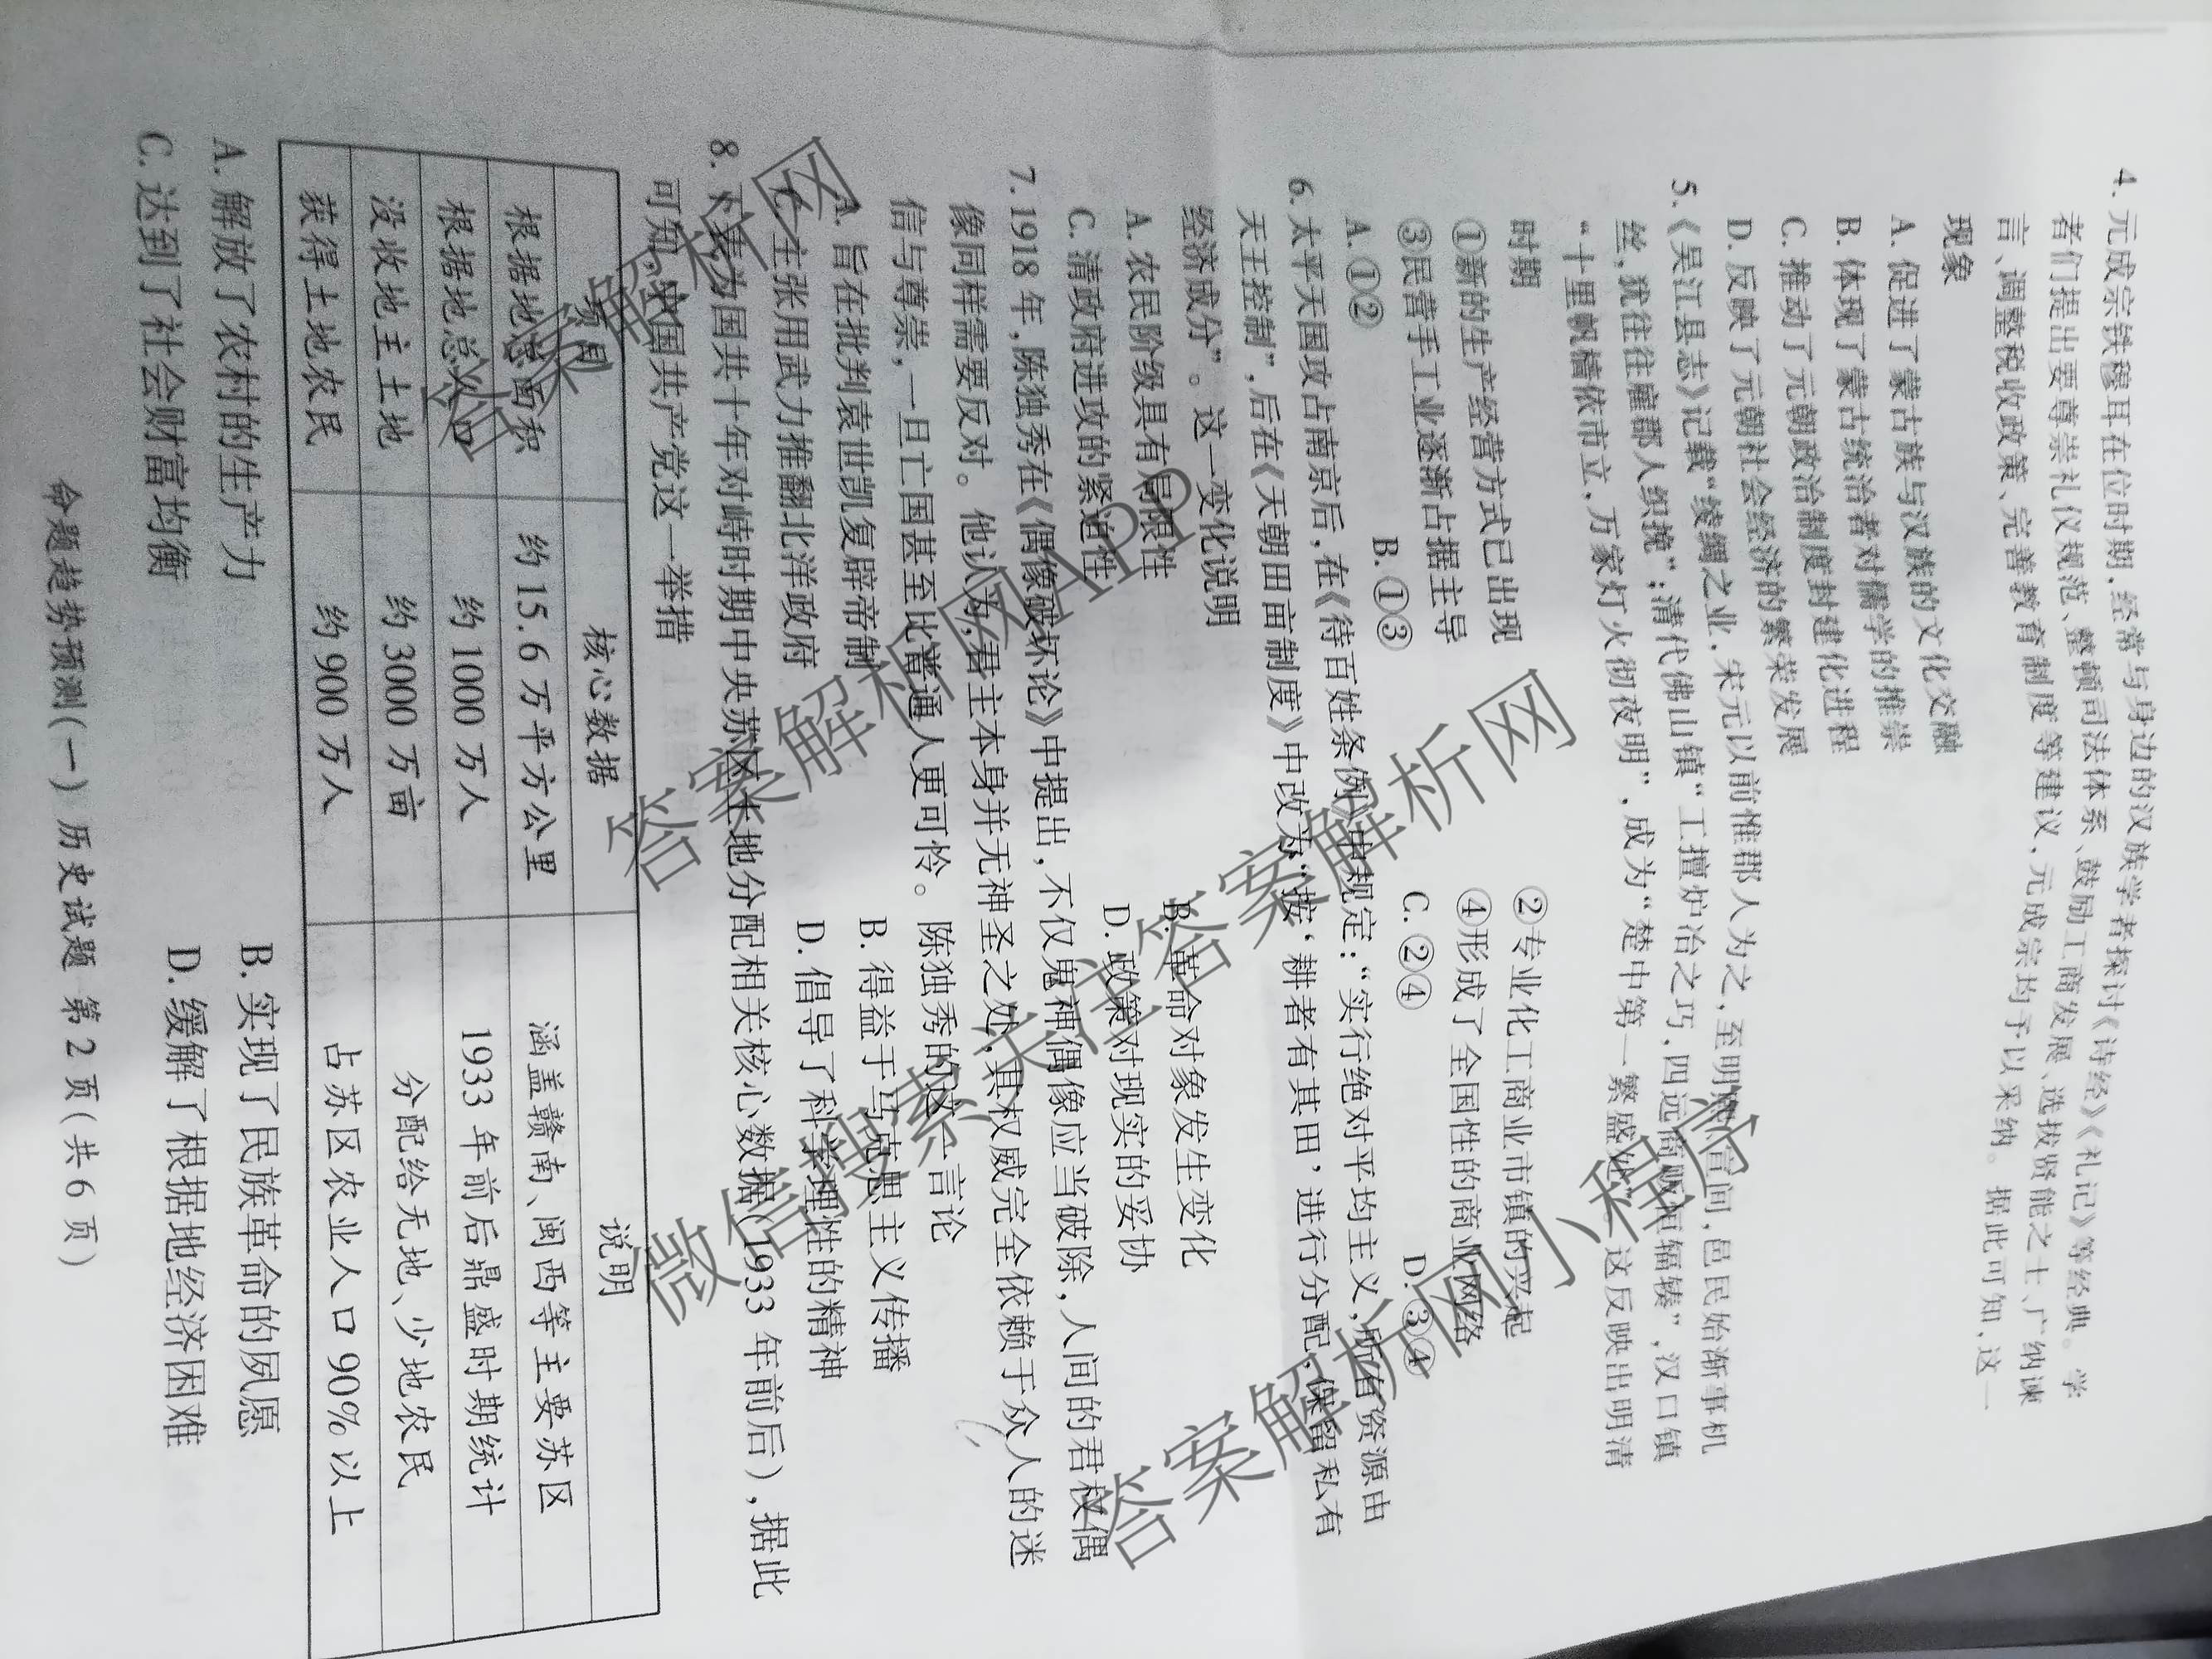 4. 元成宗铁穆耳在位时期,经常与身边的汉族学者探讨《诗经》《礼记》等经典。学
者们提出要尊崇礼仪规范、整顿司法体系、鼓励工商发展、选拔贤能之士、广纳谏
言、调整税收政策、完善教育制度等建议,元成宗均予以采纳。据此可知,这一
现象
A. 促进了蒙古族与汉族的文化交融
B. 体现了蒙古统治者对儒学的推崇
C. 推动了元朝政治制度封建化进程
D. 反映了元朝社会经济的繁荣发展
5.《吴江县志》记载“绫绸之业,宋元以前惟郡人为之,至明熙宣间,邑民始渐事机
丝,犹往往雇郡人织挽”;清代佛山镇“工擅炉冶之巧,四远商贩恒辐辏”,汉口镇
“十里帆樯依市立,万家灯火彻夜明”,成为“楚中第一繁盛处”。这反映出明清
时期
①新的生产经营方式已出现 ②专业化工商业市镇的兴起
③民营手工业逐渐占据主导 ④形成了全国性的商业网络
A. ①② B. ①③ C. ②④ D. ③④
6. 太平天国攻占南京后,在《待百姓条例》中规定:“实行绝对平均主义,所有资源由
天王控制”,后在《天朝田亩制度》中改为“按‘耕者有其田’进行分配,保留私有
经济成分”。这一变化说明
A. 农民阶级具有局限性 B. 革命对象发生变化
C. 清政府进攻的紧迫性 D. 政策对现实的妥协
7. 1918 年,陈独秀在《偶像破坏论》中提出,不仅鬼神偶像应当破除,人间的君权偶
像同样需要反对。他认为,君主本身并无神圣之处,其权威完全依赖于众人的迷
信与尊崇,一旦亡国甚至比普通人更可怜。陈独秀的这一言论
A. 旨在批判袁世凯复辟帝制 B. 得益于马克思主义传播
C. 主张用武力推翻北洋政府 D. 倡导了科学理性的精神
8. 下表为国共十年对峙时期中央苏区土地分配相关核心数据(1933 年前后),据此
可知,中国共产党这一举措
项目 核心数据 说明
根据地总面积 约 15.6 万平方公里 涵盖赣南、闽西等主要苏区
根据地总人口 约 1000 万人 1933 年前后鼎盛时期统计
没收地主土地 约 3000 万亩 分配给无地、少地农民
获得土地农民 约 900 万人 占苏区农业人口 90%以上
A. 解放了农村的生产力 B. 实现了民族革命的夙愿
C. 达到了社会财富均衡 D. 缓解了根据地经济困难
命题趋势预测(一) 历史试题 第 2 页(共 6 页)
答案解析网
答案解析网APP
微信搜索关注答案解析网
答案解析网小程序